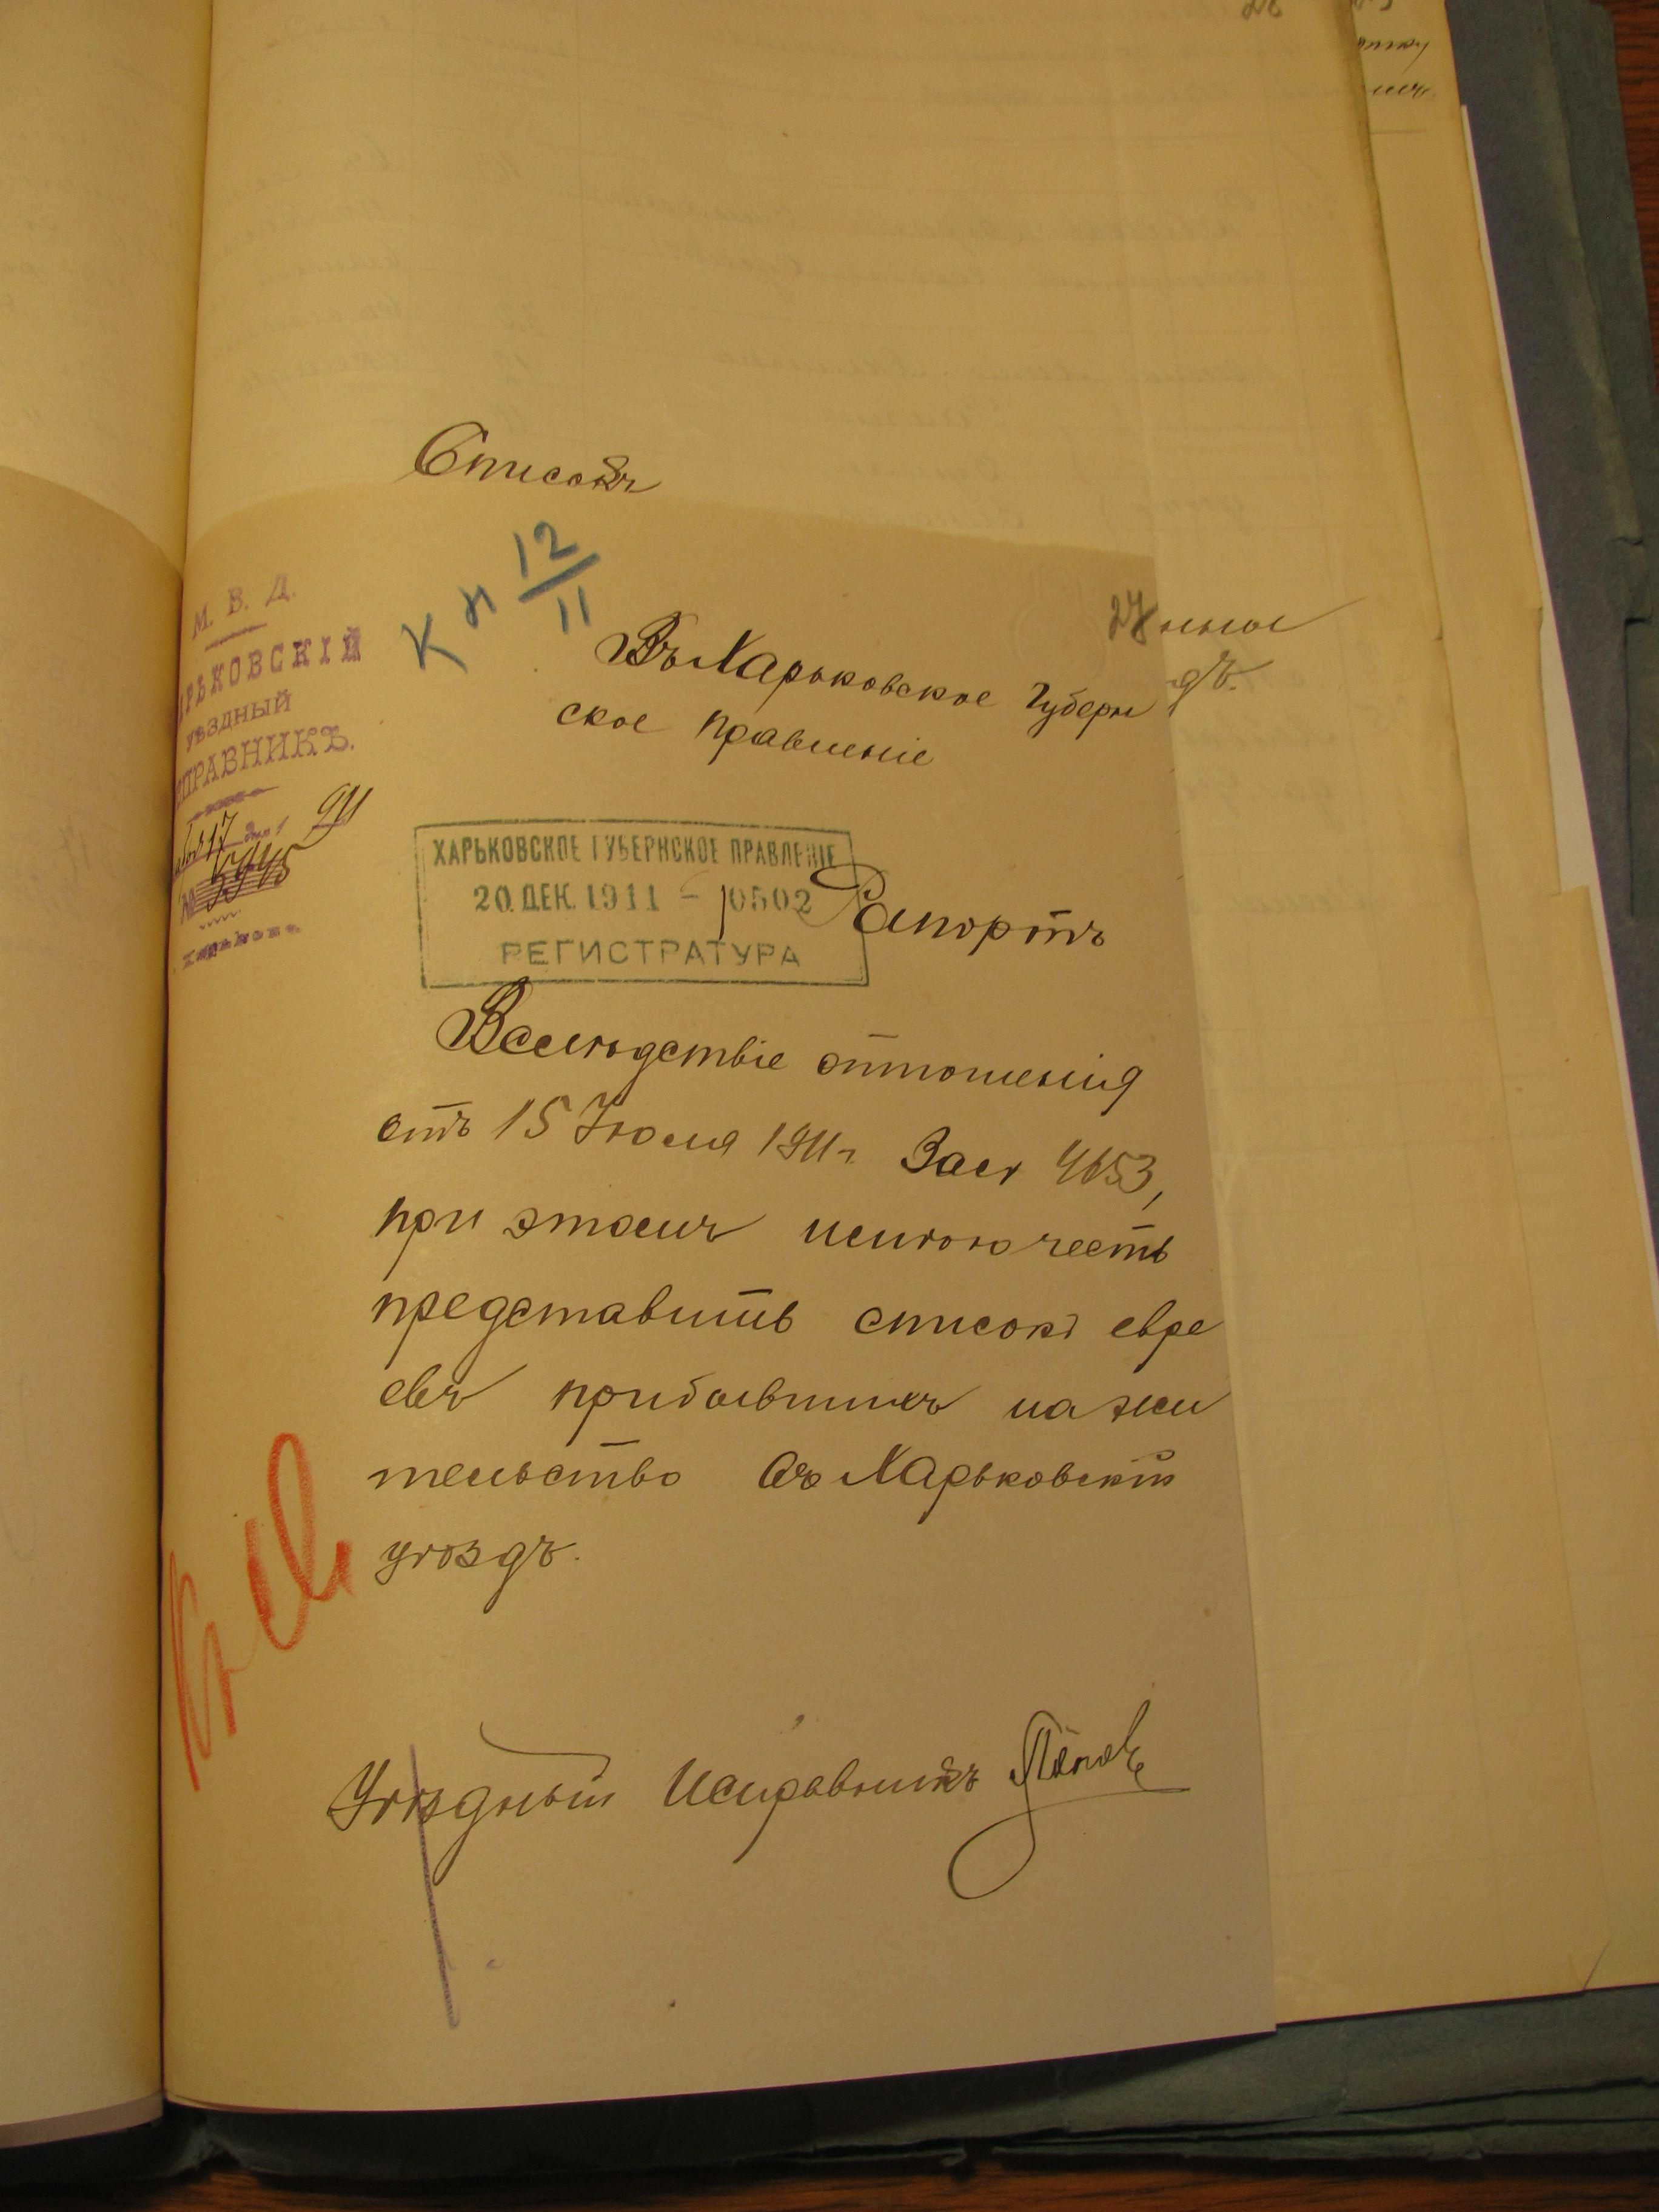 Списокъ
К н 12/11
М. В. Д.
РЬКОВСКІЙ
УѢЗДНЫЙ
СПРАВНИКЪ.
17 дня
№ 5945
Харьковъ
27
Въ Харьковское Губерн
ское Правленіе
ХАРЬКОВСКОЕ ГУБЕРНСКОЕ ПРАВЛЕНІЕ
20. ДЕК. 1911 - 10502
РЕГИСТРАТУРА
Рапортъ
Вслѣдствіе отношенія
отъ 15 Іюля 1911 г. за № 4653,
при этомъ имѣю честь
представить списокъ евре
евъ прибывшихъ на жи
тельство въ Харьковскій
уѣздъ.
Уѣздный Исправникъ